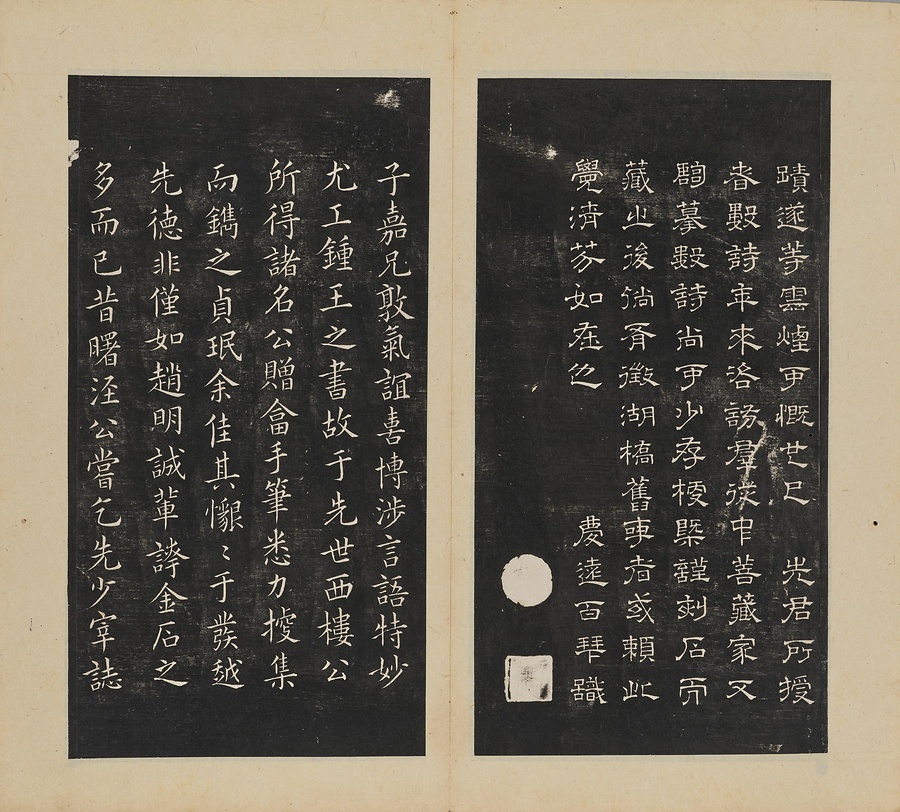 蹟遂等雲煙可慨也已　先君所授
者數詩年來洛訪羣從中善藏家又
摹數詩尚可少存梗槩謹刻石而
藏之後徜有徵湖橋舊事者或賴此
覺清芬如在也　慶遠百拜識
子嘉兄敦氣誼喜博涉言語特妙
尤工鍾王之書故于先世西樓公
所得諸名公贈畣手筆悉力摭集
而鐫之貞珉余佳其懇〻于發越
先德非僅如趙明誠輩誇金石之
多而已昔曙洼公嘗乞先少宰誌